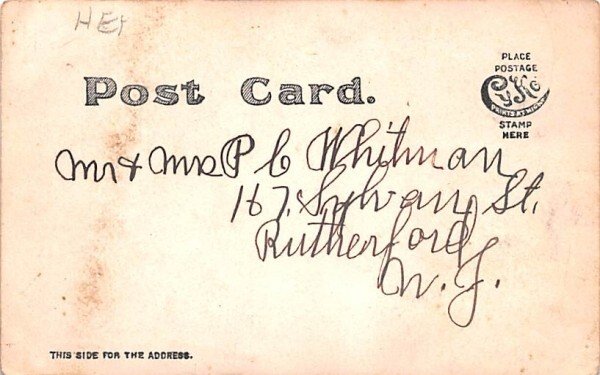 HEX
PLACE
POSTAGE
CYKO
STAMP
HERE
Post Card.
Mr & Mrs P C Whitman
167 Sylvan St.
Rutherford
N. J.
THIS SIDE FOR THE ADDRESS.